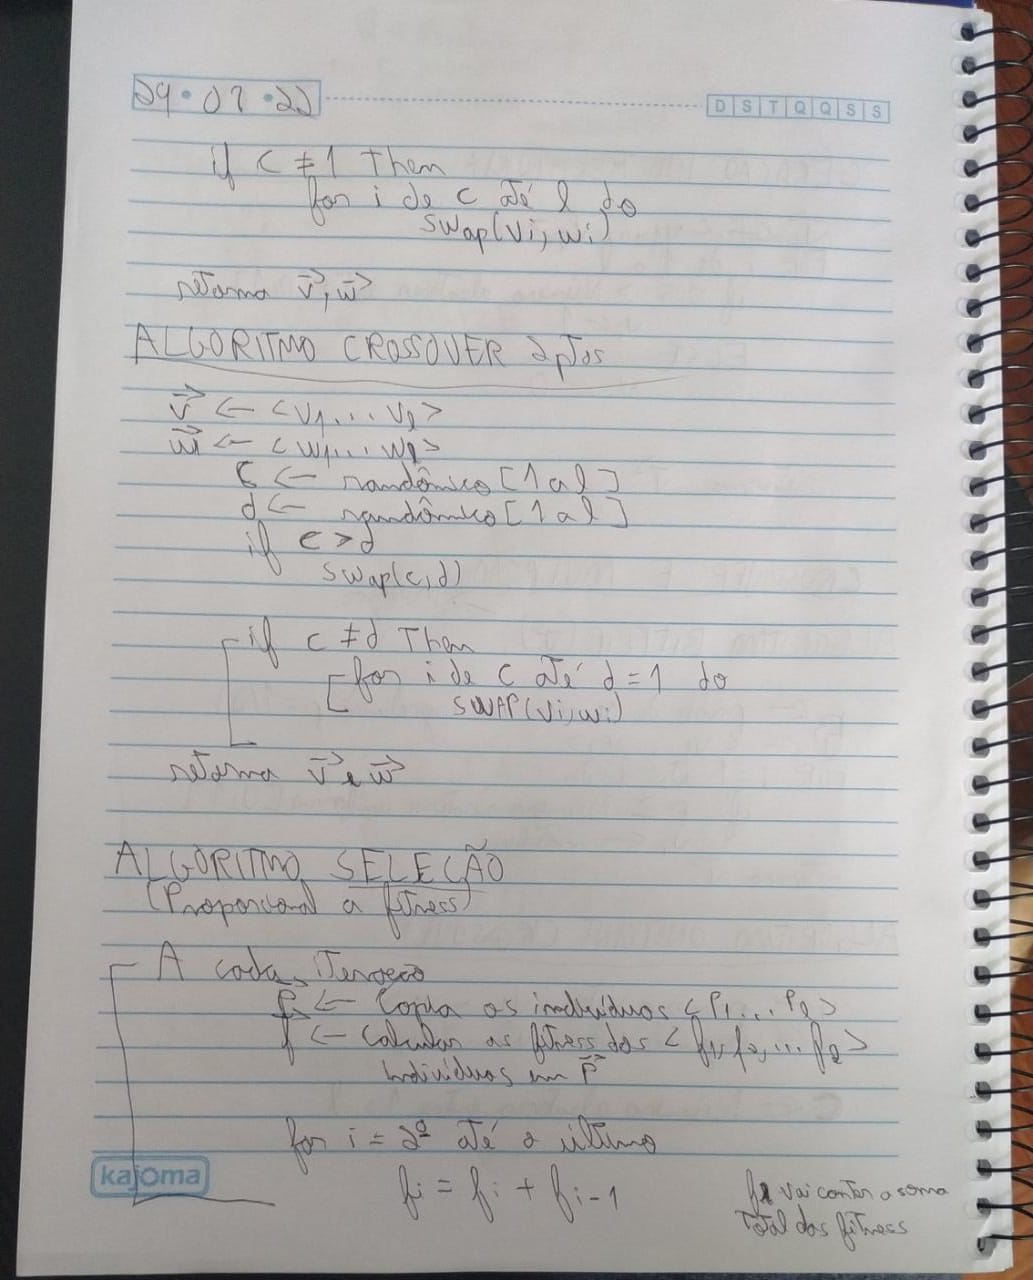 29 • 07 • 22
D S T Q Q S S
if c ≠ 1 Then
for i de c até l do
swap(vi, wi)
retorna v⃗, w⃗
ALGORITMO CROSSOVER 2 ptos
v⃗ ← <v1... vl>
w⃗ ← <w1... wl>
c ← randômico [1 a l]
d ← randômico [1 a l]
if c > d
swap(c,d)
if c ≠ d Then
for i de c até d = 1 do
SWAP(vi, wi)
retorna v⃗ e w⃗
ALGORITMO SELEÇÃO
(Proporcional a fitness)
A cada iteração
p⃗ ← Copia os indivíduos <P1... Pl>
f⃗ ← Calcular as fitness dos <f1, f2, ... fl>
indivíduos em p⃗
for i = 2º até o último
fi = fi + fi-1
fl vai conter a soma
total das fitness
kajoma